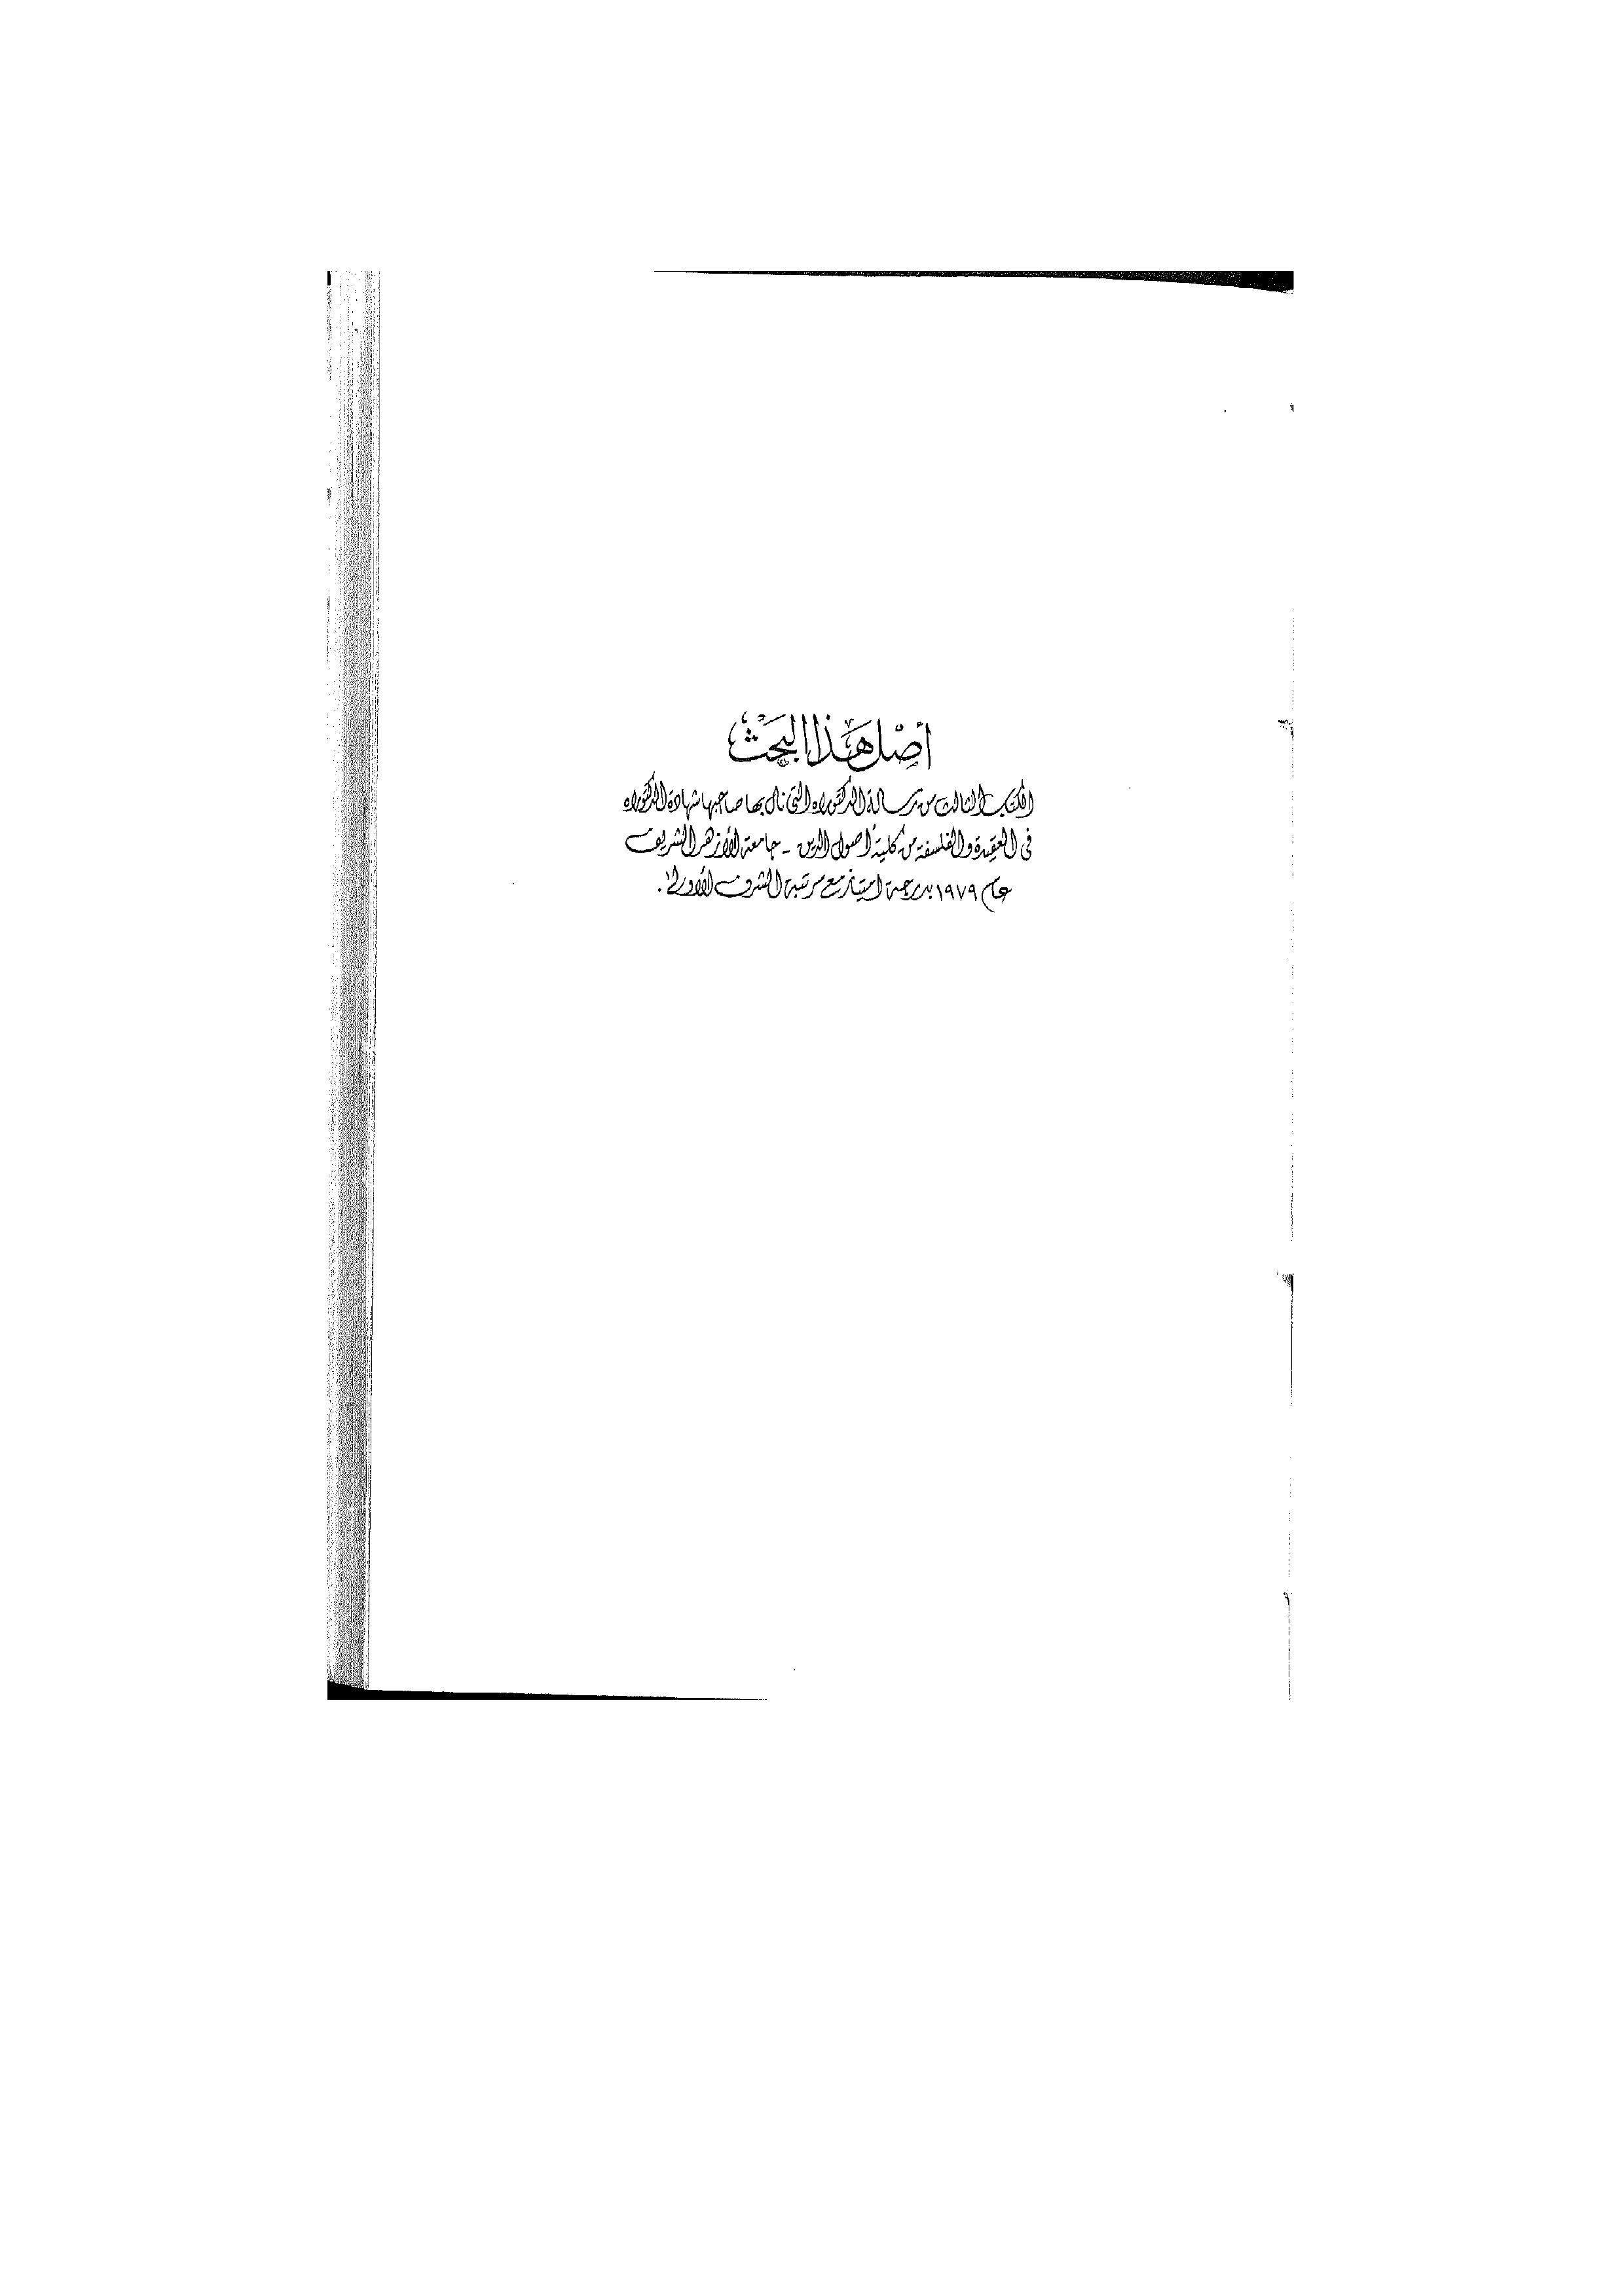 أصْل هَذا البَحْث
الكتاب الثالث من رسالة الدكتوراه التي نال بها صاحبها شهادة الدكتوراه
في العقيدة والفلسفة من كلية أصول الدين - جامعة الأزهر الشريف
عام ١٩٧٩ بدرجة امتياز مع مرتبة الشرف الأولى.